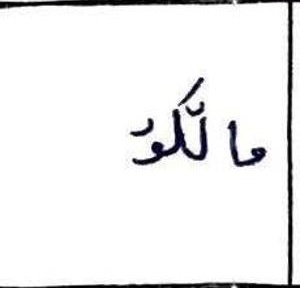 مالّكو